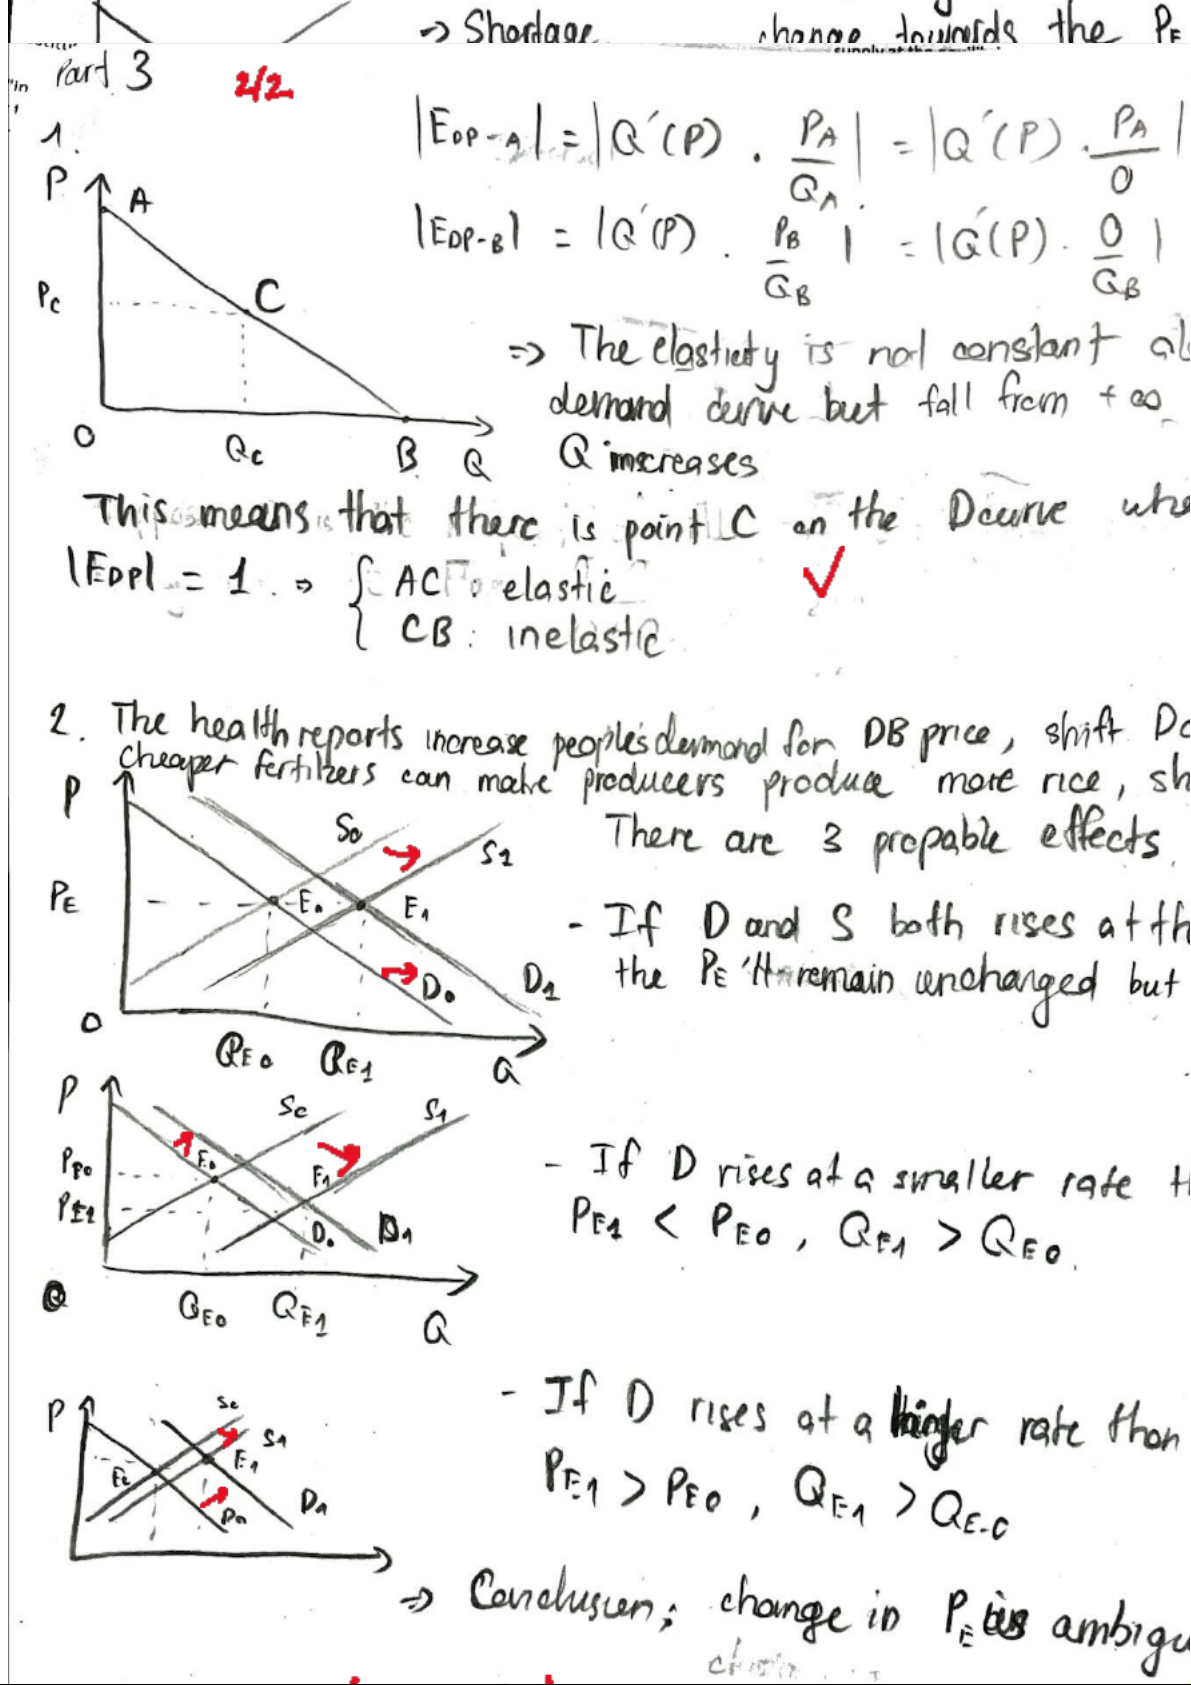 => Shortage change towards the PE
Part 3 2/2
1.
|EDP-A| = |Q'(P) . PA/QA| = |Q'(P) . PA/0|
|EDP-B| = |Q'(P) . PB/QB| = |Q'(P) . 0/QB|
P A
PC C
O QC B Q
=> The elasticity is not constant al
demand curve but fall from +∞
Q increases
This means that there is point C on the Dcurve whe
|EDP| = 1 => { AC : elastic
CB : inelastic
2. The health reports increase people's demand for DB price, shift Dc
cheaper fertilizers can make producers produce more rice, sh
There are 3 propable effects.
P S0 S1
PE E0 E1
D0 D1
O QE0 QE1 Q
- If D and S both rises at th
the PE 'll remain unchanged but
P S0 S1
PE0 E0 E1
PE1 D0 D1
O QE0 QE1 Q
- If D rises at a smaller rate th
PE1 < PE0 , QE1 > QE0.
P S0 S1
E0 E1
D0 D1
- If D rises at a higher rate than
PE1 > PE0 , QE1 > QE0
=> Conclusion: change in PE is ambigu